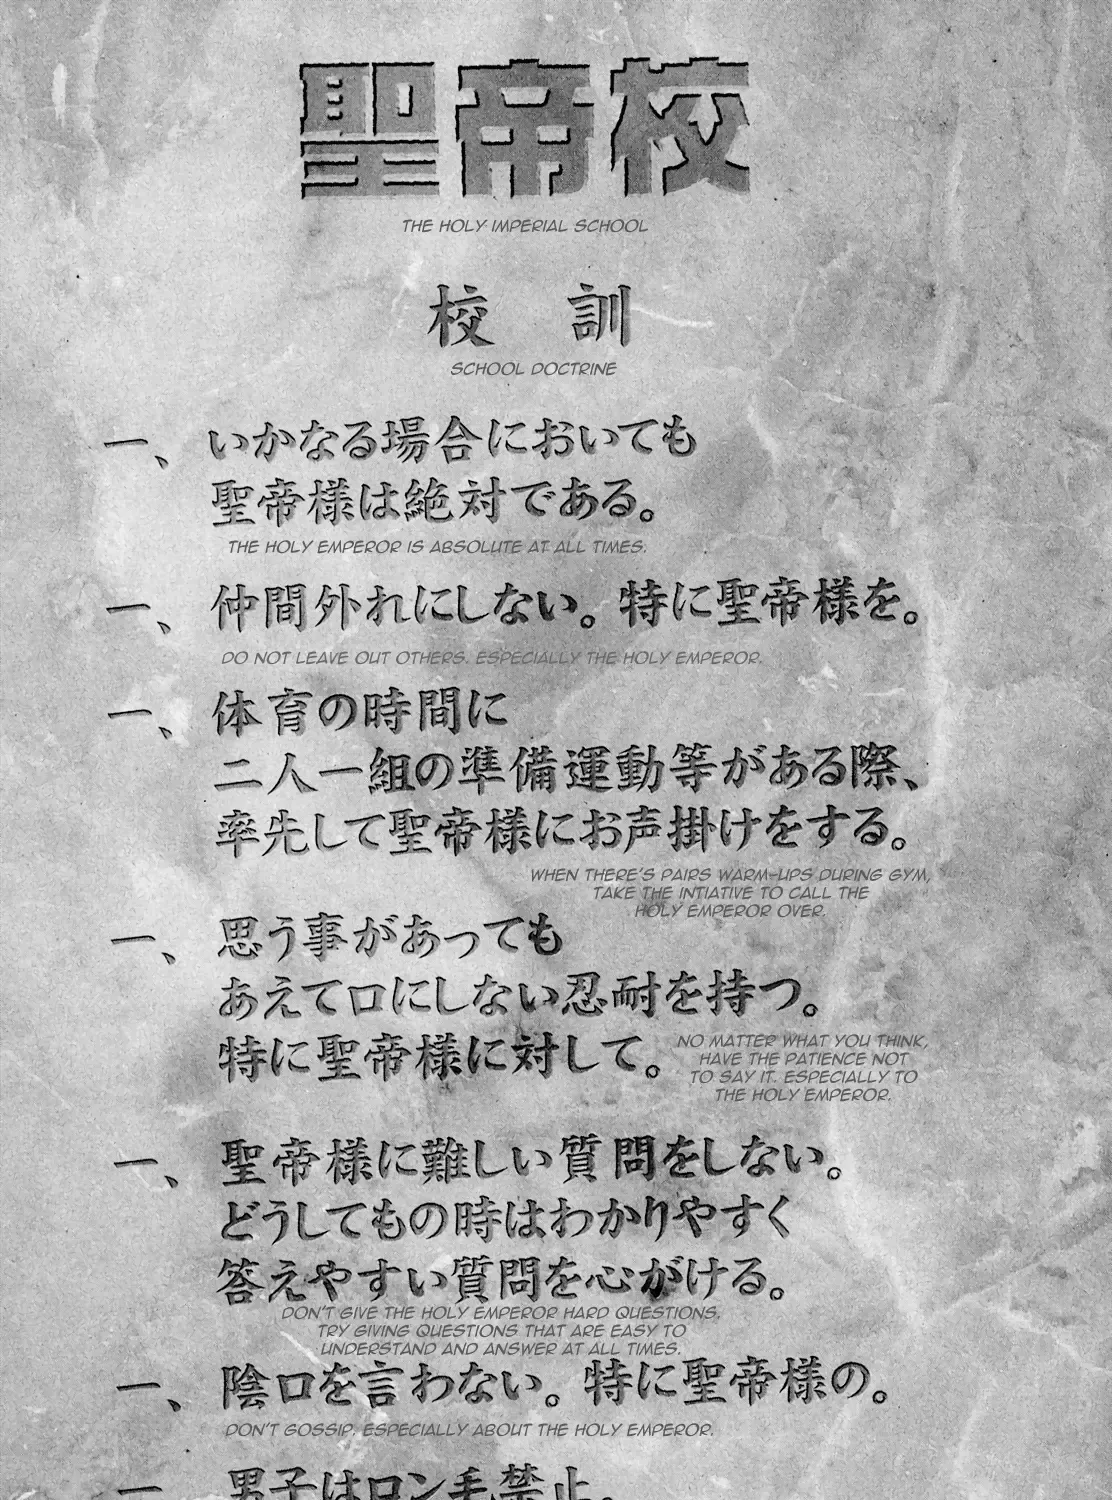 聖帝校
THE HOLY IMPERIAL SCHOOL
校 訓
SCHOOL DOCTRINE
一、いかなる場合においても
聖帝様は絶対である。
THE HOLY EMPEROR IS ABSOLUTE AT ALL TIMES.
一、仲間外れにしない。特に聖帝様を。
DO NOT LEAVE OUT OTHERS. ESPECIALLY THE HOLY EMPEROR.
一、体育の時間に
二人一組の準備運動等がある際、
率先して聖帝様にお声掛けをする。
WHEN THERE'S PAIRS WARM-UPS DURING GYM,
TAKE THE INTIATIVE TO CALL THE
HOLY EMPEROR OVER.
一、思う事があっても
あえて口にしない忍耐を持つ。
特に聖帝様に対して。
NO MATTER WHAT YOU THINK,
HAVE THE PATIENCE NOT
TO SAY IT. ESPECIALLY TO
THE HOLY EMPEROR.
一、聖帝様に難しい質問をしない。
どうしてもの時はわかりやすく
答えやすい質問を心がける。
DON'T GIVE THE HOLY EMPEROR HARD QUESTIONS,
TRY GIVING QUESTIONS THAT ARE EASY TO
UNDERSTAND AND ANSWER AT ALL TIMES.
一、陰口を言わない。特に聖帝様の。
DON'T GOSSIP. ESPECIALLY ABOUT THE HOLY EMPEROR.
一、男子はロン毛禁止。